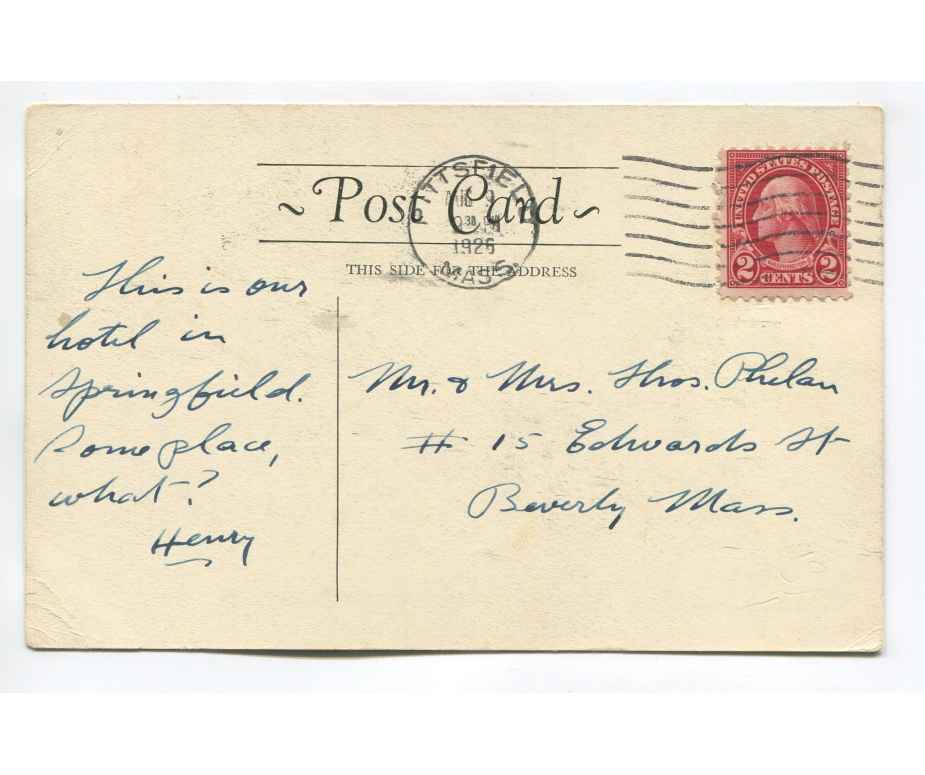 Post Card
THIS SIDE FOR THE ADDRESS
PITTSFIELD
9
1926
MASS.
UNITED STATES POSTAGE
2 CENTS 2
This is our
hotel in
Springfield.
Some place,
what?
Henry
Mr. & Mrs. Thos. Phelan
# 15 Edwards St
Beverly Mass.